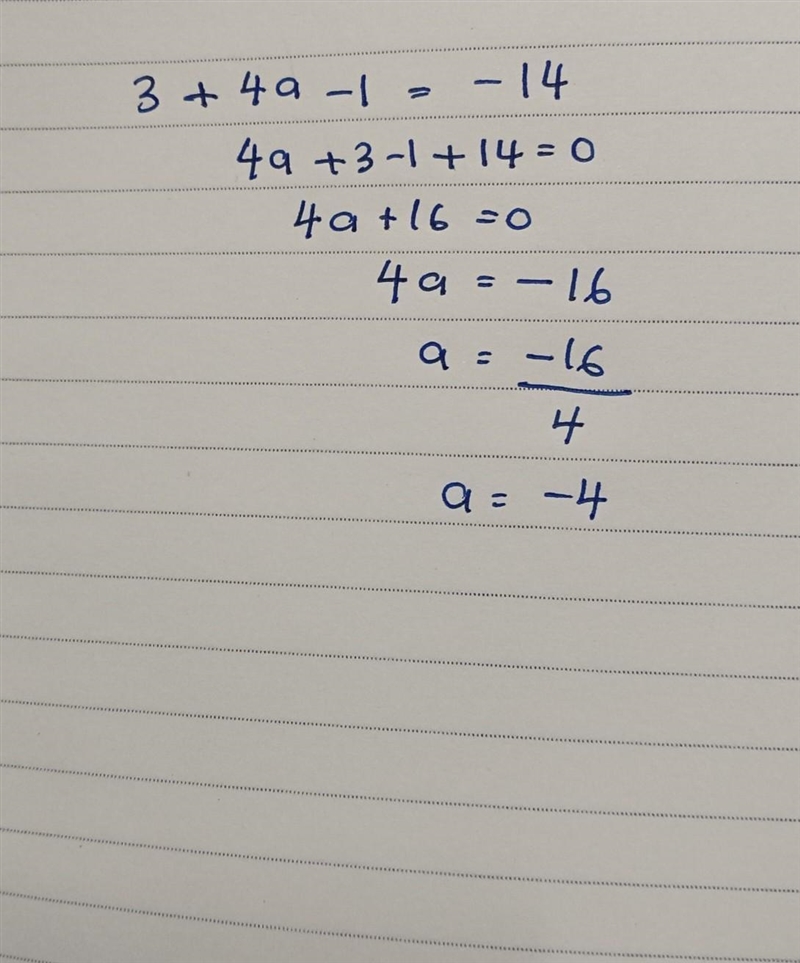 3 + 4a - 1 = -14
4a + 3 - 1 + 14 = 0
4a + 16 = 0
4a = -16
a = -16
4
a = -4